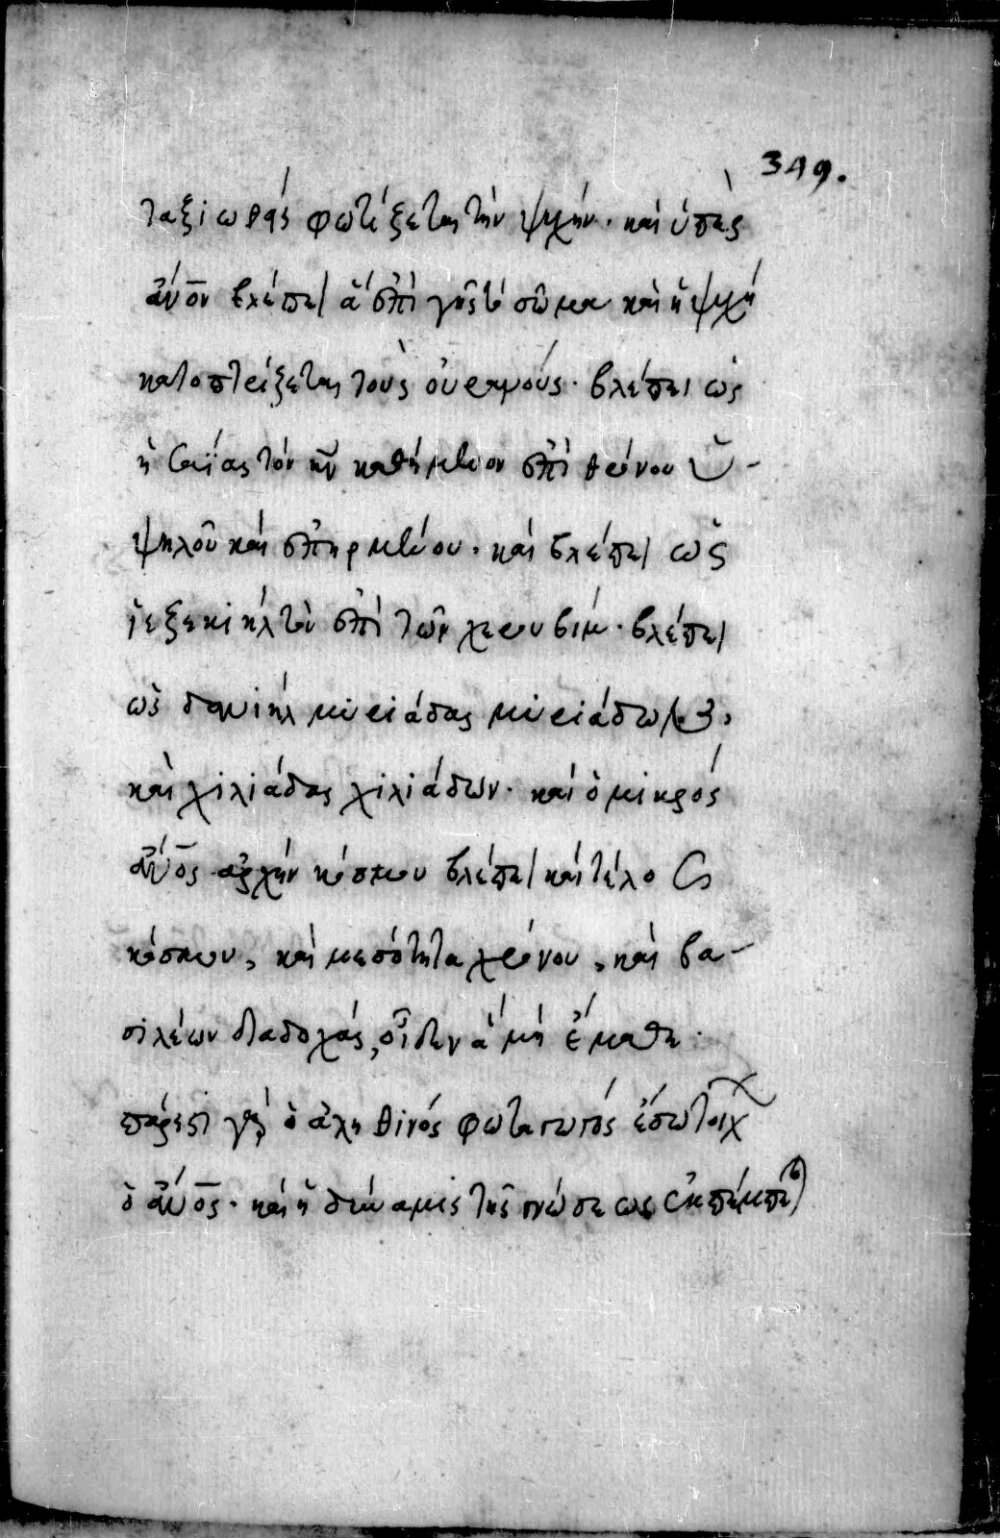 349.
ταξιωθεὶς φωτίζεται τὴν ψυχήν. καὶ ὑπὲρ
ἄν̅ο̅ν βλέπει ἀ ἐπὶ γῆς τὸ σῶμα καὶ ἡ ψυχὴ
κατοπτρίζεται τοὺς οὐρανούς. βλέπει ὡς
ἡσαΐας τὸν κ̅ν̅ καθήμενον ἐπὶ θρόνου ὑ-
ψηλοῦ καὶ ἐπηρμένου. καὶ βλέπει ὡς
ἰεζεκιὴλ τὸν ἐπὶ τῶν χερουβίμ. βλέπει
ὡς δανιὴλ μυριάδας μυριάδων,
καὶ χιλιάδας χιλιάδων. καὶ ὁ μικρός
ἄν̅ο̅ς ἀρχὴν κόσμου βλέπει καὶ τέλος
κόσμου, καὶ μεσότητα χρόνου, καὶ βα-
σιλέων διαδοχάς, οἶδεν ἁ μὴ ἔμαθε.
πάρεστι γὰρ ὁ ἀληθινός φωταγωγός ἔσω τοίχ
ὁ ἄν̅ο̅ς. καὶ ἡ δύναμις τῆς γνώσεως ἐκπέμπει